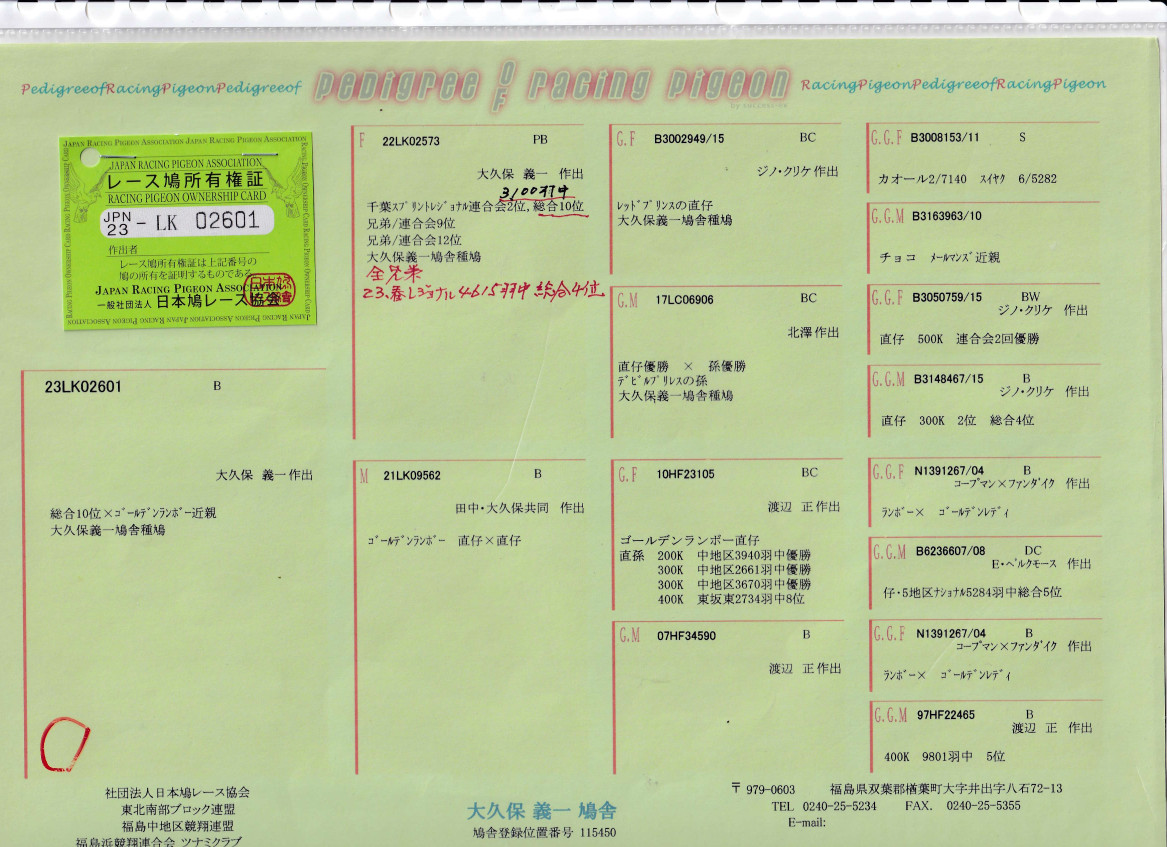 PedigreeofRacingPigeonPedigreeof
pedigree OF racing pigeon
RacingPigeonPedigreeofRacingPigeon
JAPAN RACING PIGEON ASSOCIATION JAPAN RACING PIGEON ASSOCIATION
JAPAN RACING PIGEON ASSOCIATION
レース鳩所有権証
RACING PIGEON OWNERSHIP CARD
JPN 23 - LK 02601
作出者
レース鳩所有権証は上記番号の
鳩の所有を証明するものである
JAPAN RACING PIGEON ASSOCIATION
一般社団法人 日本鳩レース協会
23LK02601 B
大久保 義一作出
総合10位×ｺﾞｰﾙﾃﾞﾝﾗﾝﾎﾞｰ近親
大久保義一鳩舎種鳩
F 22LK02573 PB
大久保 義一 作出
3100羽中
千葉ｽﾌﾟﾘﾝﾄﾚｼﾞｮﾅﾙ連合会2位,総合10位
兄弟/連合会9位
兄弟/連合会12位
大久保義一鳩舎種鳩
全兄弟
23.春レジョナル4615羽中 総合4位
M 21LK09562 B
田中・大久保共同 作出
ｺﾞｰﾙﾃﾞﾝﾗﾝﾎﾞｰ 直仔×直仔
G.F B3002949/15 BC
ジノ・クリケ作出
ﾚｯﾄﾞﾌﾟﾘﾝｽの直仔
大久保義一鳩舎種鳩
G.M 17LC06906 BC
北澤作出
直仔優勝 × 孫優勝
ﾃﾞﾋﾞﾙﾌﾟﾘﾚｽの孫
大久保,義一鳩舎種鳩
G.F 10HF23105 BC
渡辺 正作出
ゴールデンランボー直仔
直孫 200K 中地区3940羽中優勝
300K 中地区2661羽中優勝
300K 中地区3670羽中優勝
400K 東坂東2734羽中8位
G.M 07HF34590 B
渡辺 正作出
G.G.F B3008153/11 S
カオール2/7140 ｽｲﾔｸ 6/5282
G.G.M B3163963/10
チョコ ﾒｰﾙﾏﾝｽﾞ近親
G.G.F B3050759/15 BW
ジノ・クリケ 作出
直仔 500K 連合会2回優勝
G.G.M B3148467/15 B
ジノ・クリケ 作出
直仔 300K 2位 総合4位
G.G.F N1391267/04 B
コープマン×ファンダイク 作出
ﾗﾝﾎﾞｰ× ｺﾞｰﾙﾃﾞﾝﾚﾃﾞｨ
G.G.M B6236607/08 DC
E・ベルクモース 作出
仔・5地区ﾅｼｮﾅﾙ5284羽中総合5位
G.G.F N1391267/04 B
コープマン×ファンダイク 作出
ﾗﾝﾎﾞｰ× ｺﾞｰﾙﾃﾞﾝﾚﾃﾞｨ
G.G.M 97HF22465 B
渡辺 正 作出
400K 9801羽中 5位
社団法人日本鳩レース協会
東北南部ブロック連盟
福島中地区競翔連盟
福島浜競翔連合会 ツナミクラブ
大久保 義一 鳩舎
鳩舎登録位置番号 115450
〒979-0603 福島県双葉郡楢葉町大字井出字八石72-13
TEL 0240-25-5234 FAX. 0240-25-5355
E-mail: